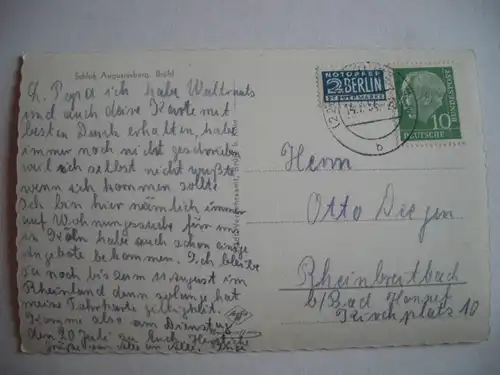 Schloß Augustusburg, Brühl
L. Papa ich habe Waltrauts
und auch deine Karte mit
besten Dank erhalten, habe
immer noch nicht geschrieben
weil ich selbst nicht wußte
wenn ich kommen sollte.
Ich bin hier nämlich immer
auf Wohnungssuche für uns
in Köln habe auch schon einige
Angebote bekommen. Ich bleibe
ja noch bis zum 11 August im
Rheinland denn solange hat
meine Fahrkarte gültigkeit.
Komme also am Dienstag
dem 20 Juli zu Euch. Herzliche
Grüße von
NOTOPFER
2 BERLIN
STEUERMARKE
b
DEUTSCHE
BUNDESPOST
10
Herrn
Otto Diegen
Rheinbreitbach
b/Bad Honnef
Kirchplatz 10
Agfa